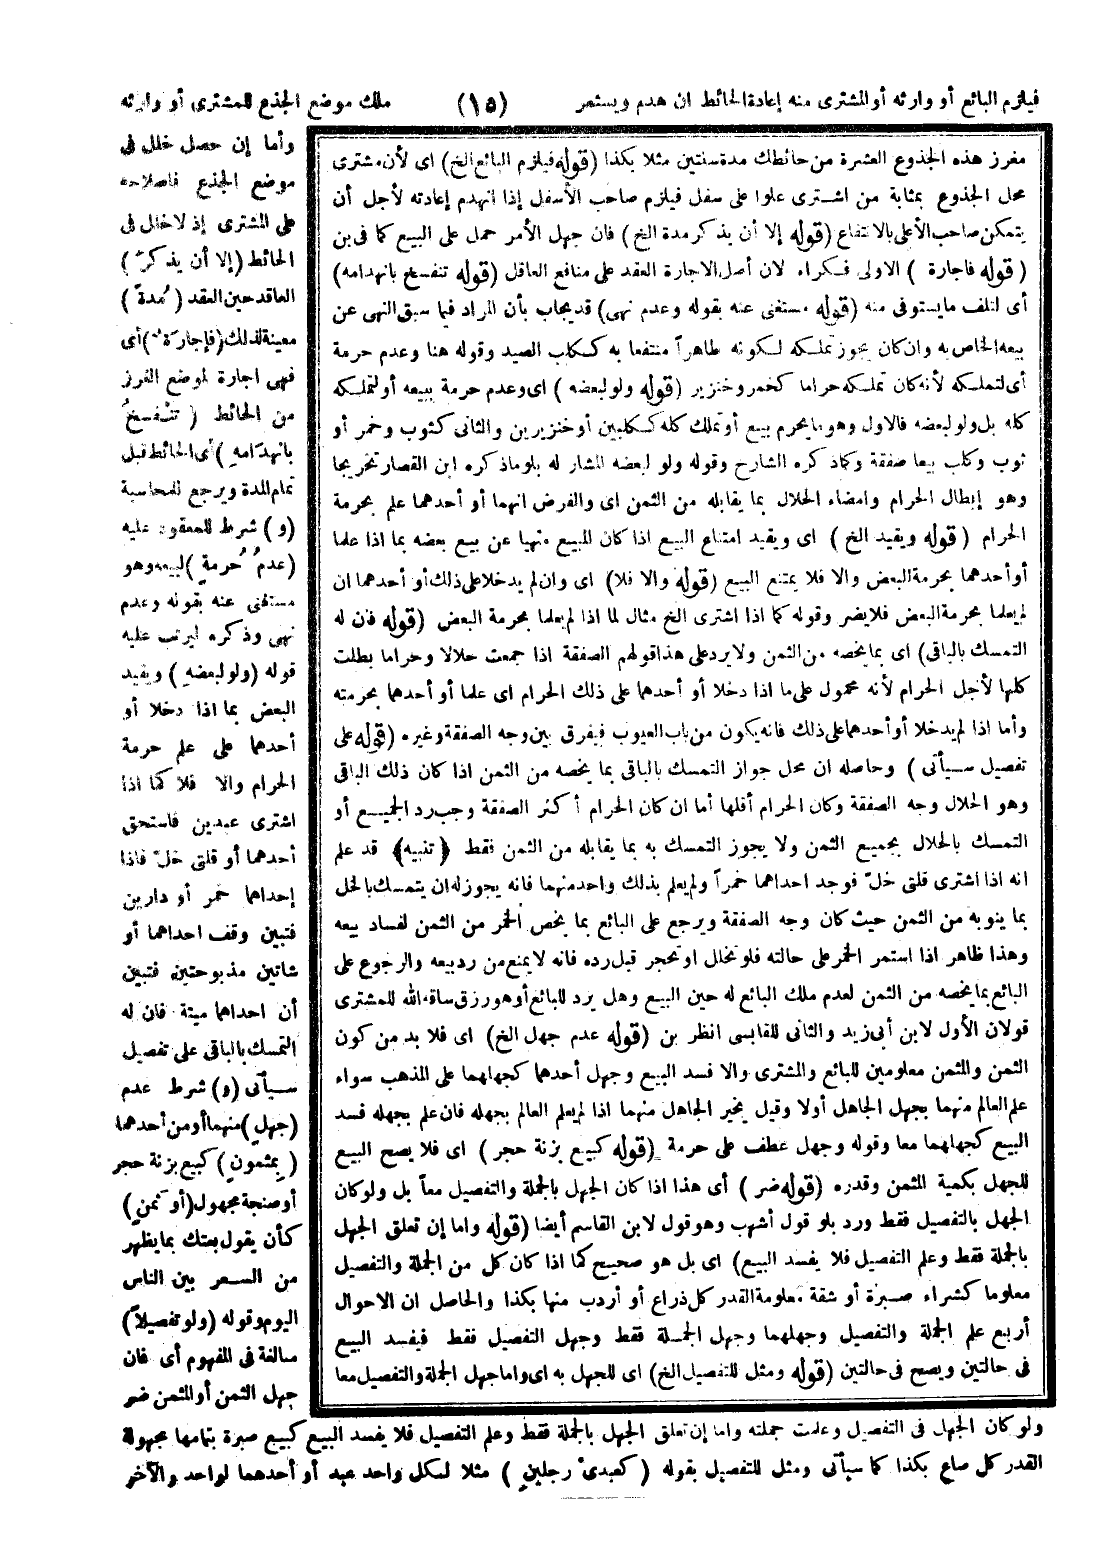 فيلزم البائع أو وارثه أو المشترى منه إعادة الحائط ان هدم ويستمر (١٥) ملك موضع الجذع للمشترى أو وارثه
وأما إن حصل خلل فى
موضع الجذع فاصلاحه
على المشترى إذ لا خلل فى
الحائط (إلا أن يذكر)
العاقد حين العقد (مُدة)
معينة لذلك (فإجارة) أى
فهى اجارة لموضع الغرز
من الحائط (تنفسخُ
بانهدامهِ) أى الحائط قبل
تمام المدة ويرجع للمحاسبة
(و) شرط للمعقود عليه
(عدمُ حُرمةٍ) لبيعه وهو
مستغنى عنه بقوله وعدم
نهى وذكره ليرتب عليه
قوله (ولو لبعضهِ) ويقيد
البعض بما اذا دخلا أو
أحدهما على علم حرمة
الحرام والا فلا كما اذا
اشترى عبدين فاستحق
أحدهما أو قلتى خلّ فاذا
إحداهما خمر أو دارين
فتبين وقف احداهما أو
شاتين مذبوحتين فتبين
أن احداهما ميتة فان له
التمسك بالباقى على تفصيل
سيأتى (و) شرط عدم
(جهلٍ) منهما أو من أحدهما
(بمثمونٍ) كبيع بزنة حجر
أو صنجة مجهول (أو ثمنٍ)
كأن يقول بعتك بما يظهر
من السعر بين الناس
اليوم وقوله (ولو تفصيلاً)
مبالغة فى المفهوم أى فان
جهل الثمن أو المثمن ضر
مغرز هذه الجذوع العشرة من حائطك مدة سنتين مثلا بكذا (قوله فيلزم البائع الخ) اى لأن مشترى
محل الجذوع بمثابة من اشترى علوا على سفل فيلزم صاحب الأسفل إذا انهدم إعادته لأجل أن
يتمكن صاحب الأعلى بالانتفاع (قوله إلا أن يذكر مدة الخ) فان جهل الأمر حمل على البيع كما فى بن
(قوله فاجارة) الاولى فكراء لان أصل الاجارة العقد على منافع العاقل (قوله تنفسخ بانهدامه)
أى لتلف ما يستوفى منه (قوله مستغنى عنه بقوله وعدم نهى) قد يجاب بأن المراد فيما سبق النهى عن
بيعه الخاص به وان كان يجوز تملكه لكونه طاهراً منتفعا به ككلب الصيد وقوله هنا وعدم حرمة
أى لتملكه لأنه كان تملكه حراما كخمر وخنزير (قوله ولو لبعضه) اى وعدم حرمة بيعه أو لتملكه
كله بل ولو لبعضه فالاول وهو ما يحرم بيع أو تملك كله ككلبين أو خنزيرين والثانى كثوب وخمر أو
ثوب وكلب بيعا صفقة وكماذكره الشارح وقوله ولو لبعضه المشار له بلو ماذكره ابن القصار تخريجا
وهو إبطال الحرام وامضاء الحلال بما يقابله من الثمن اى والفرض انهما أو أحدهما علم بحرمة
الحرام (قوله ويقيد الخ) اى ويقيد امتناع البيع اذا كان المبيع منهيا عن بيع بعضه بما اذا علما
أو أحدهما بحرمة البعض والا فلا يمتنع البيع (قوله والا فلا) اى وان لم يدخلا على ذلك أو أحدهما ان
لم يعلما بحرمة البعض فلا يضر وقوله كما اذا اشترى الخ مثال لما اذا لم يعلما بحرمة البعض (قوله فان له
التمسك بالباقى) اى بما يخصه من الثمن ولا يرد على هذا قولهم الصفقة اذا جمعت حلالا وحراما بطلت
كلها لأجل الحرام لأنه محمول على ما اذا دخلا أو أحدهما على ذلك الحرام اى علما أو أحدهما بحرمته
وأما اذا لم يدخلا أو أحدهما على ذلك فانه يكون من باب العيوب فيفرق بين وجه الصفقة وغيره (قوله على
تفصيل سيأتى) وحاصله ان محل جواز التمسك بالباقى بما يخصه من الثمن اذا كان ذلك الباقى
وهو الحلال وجه الصفقة وكان الحرام أقلها أما ان كان الحرام أكثر الصفقة وجب رد الجميع أو
التمسك بالحلال بجميع الثمن ولا يجوز التمسك به بما يقابله من الثمن فقط ﴿تنبيه﴾ قد علم
انه اذا اشترى قلتى خلّ فوجد احداهما خمراً ولم يعلم بذلك واحد منهما فانه يجوز له ان يتمسك بالخل
بما ينوبه من الثمن حيث كان وجه الصفقة ويرجع على البائع بما يخص الخمر من الثمن لفساد بيعه
وهذا ظاهر اذا استمر الخمر على حالته فلو تخلل او تحجر قبل رده فانه لا يمنع من رد بيعه والرجوع على
البائع بما يخصه من الثمن لعدم ملك البائع له حين البيع وهل يرد للبائع أو هو رزق ساقه الله للمشترى
قولان الأول لابن أبى زيد والثانى للقابسى انظر بن (قوله عدم جهل الخ) اى فلا بد من كون
الثمن والمثمن معلومين للبائع والمشترى والا فسد البيع وجهل أحدهما كجهلهما على المذهب سواء
علم العالم منهما بجهل الجاهل أولا وقيل يخير الجاهل منهما اذا لم يعلم العالم بجهله فان علم بجهله فسد
البيع كجهلهما معا وقوله وجهل عطف على حرمة (قوله كبيع بزنة حجر) اى فلا يصح البيع
للجهل بكمية المثمن وقدره (قوله ضر) أى هذا اذا كان الجهل بالجملة والتفصيل معاً بل ولو كان
الجهل بالتفصيل فقط ورد بلو قول أشهب وهو قول لابن القاسم أيضا (قوله واما إن تعلق الجهل
بالجملة فقط وعلم التفصيل فلا يفسد البيع) اى بل هو صحيح كما اذا كان كل من الجملة والتفصيل
معلوما كشراء صبرة أو شقة معلومة القدر كل ذراع أو أردب منها بكذا والحاصل ان الاحوال
أربع علم الجملة والتفصيل وجهلهما وجهل الجملة فقط وجهل التفصيل فقط فيفسد البيع
فى حالتين ويصح فى حالتين (قوله ومثل للتفصيل الخ) اى للجهل به اى واما جهل الجملة والتفصيل معا
ولو كان الجهل فى التفصيل وعلمت جملته واما إن تعلق الجهل بالجملة فقط وعلم التفصيل فلا يفسد البيع كبيع صبرة بتمامها مجهولة
القدر كل صاع بكذا كما سيأتى ومثل للتفصيل بقوله (كعبدىْ رجلينِ) مثلا لكل واحد عبد أو أحدهما لواحد والآخر